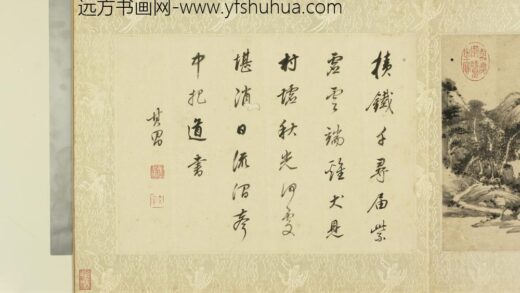 远方书画网-www.yfshuhua.com
積鐵千尋届紫
虛雲端雞犬見
村墟秋光何處
堪消日流澗聲
中把道書
其昌